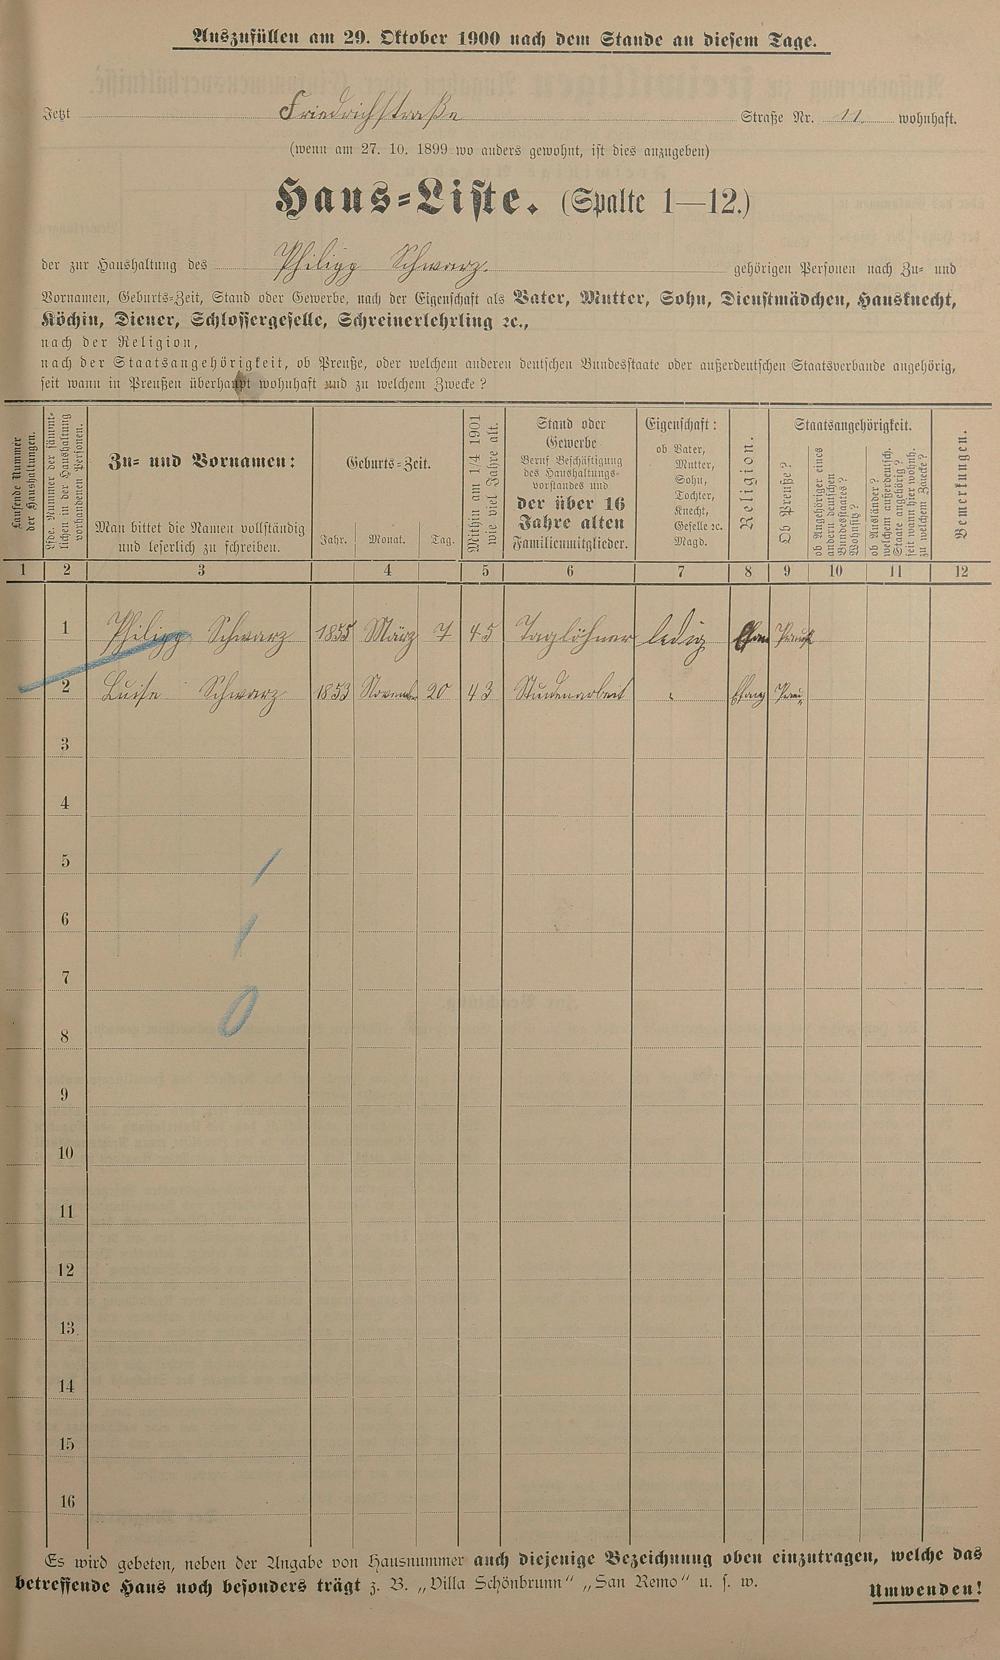 Auszufüllen am 29. Oktober 1900 nach dem Stande an diesem Tage.
Jetzt Friedrichstraße Straße Nr. 11 wohnhaft.
(wenn am 27. 10. 1899 wo anders gewohnt, ist dies anzugeben)
Haus-Liste. (Spalte 1—12.)
der zur Haushaltung des Philipp Schwarz. gehörigen Personen nach Zu- und
Vornamen, Geburts-Zeit, Stand oder Gewerbe, nach der Eigenschaft als Vater, Mutter, Sohn, Dienstmädchen, Hausknecht,
Köchin, Diener, Schlossergeselle, Schreinerlehrling ꝛc.,
nach der Religion,
nach der Staatsangehörigkeit, ob Preuße, oder welchem anderen deutschen Bundesstaate oder außerdeutschen Staatsverbande angehörig,
seit wann in Preußen überhaupt wohnhaft und zu welchem Zwecke?
Laufende Nummer
der Haushaltungen.
Lfde. Nummer der sämmt-
lichen in der Haushaltung
vorhandenen Personen.
Zu- und Vornamen:
Man bittet die Namen vollständig
und leserlich zu schreiben.
Geburts-Zeit.
Jahr. Monat. Tag.
Mithin am 1/4 1901
wie viel Jahre alt.
Stand oder
Gewerbe
Beruf Beschäftigung
des Haushaltungs-
vorstandes und
der über 16
Jahre alten
Familienmitglieder.
Eigenschaft:
ob Vater,
Mutter,
Sohn,
Tochter,
Knecht,
Geselle ꝛc.
Magd.
Religion.
Staatsangehörigkeit.
Ob Preuße?
ob Angehöriger eines
andern deutschen
Bundesstaates?
Wohnsitz?
ob Ausländer?
welchem außerdeutsch.
Staate angehörig?
seit wann hier wohnh.
zu welchem Zwecke?
Bemerkungen.
1 2 3 4 5 6 7 8 9 10 11 12
1 Philipp Schwarz 1855 März 7 45 Taglöhner ledig
2 Luise Schwarz 1853 November 20 43
3
4
5
6
7
8
9
10
11
12
13
14
15
16
Es wird gebeten, neben der Angabe von Hausnummer auch diejenige Bezeichnung oben einzutragen, welche das
betreffende Haus noch besonders trägt z. B. „Villa Schönbrunn“ „San Remo“ u. s. w.
Umwenden!